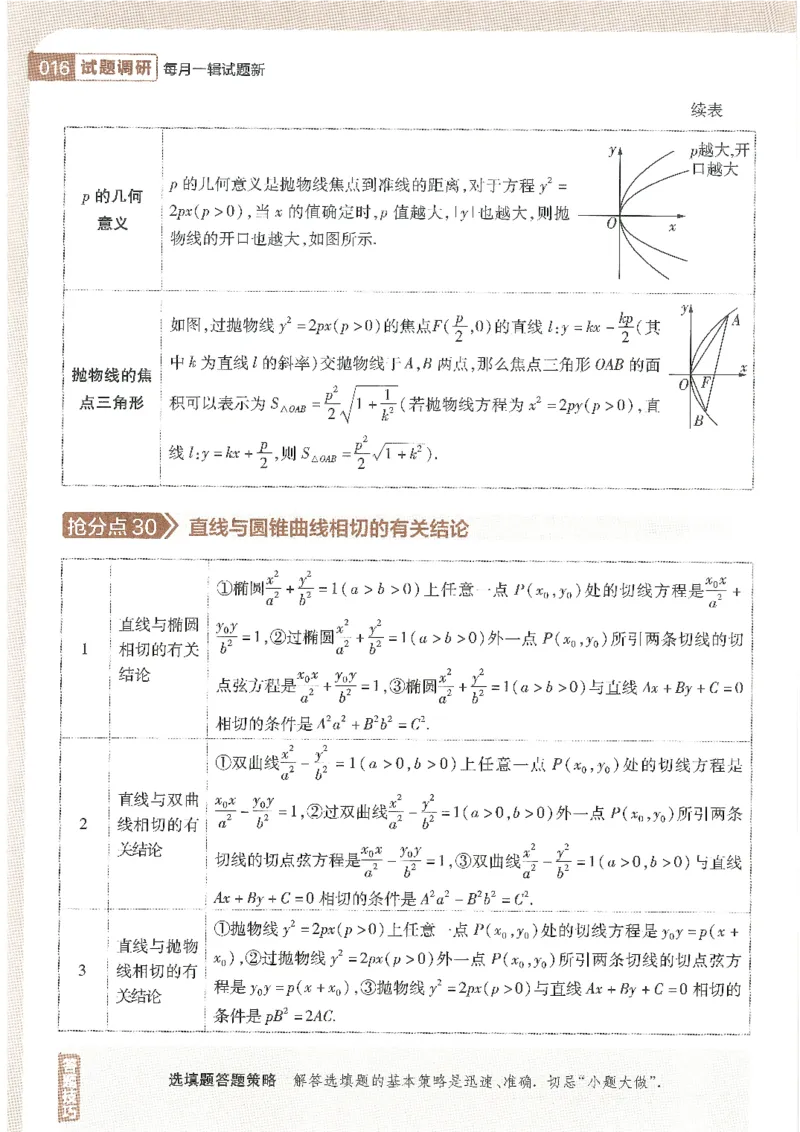 016 试题调研 每月一辑试题新
续表
p 的几何
意义
p 的几何意义是抛物线焦点到准线的距离,对于方程 y² =
2px(p>0),当 x 的值确定时,p 值越大,|y|也越大,则抛
物线的开口也越大,如图所示.
y
p越大,开
口越大
O
x
抛物线的焦
点三角形
如图,过抛物线 y² =2px(p>0)的焦点F(p/2,0)的直线 l:y=kx-kp/2(其
中 k 为直线 l 的斜率)交抛物线于 A,B 两点,那么焦点三角形 OAB 的面
积可以表示为 S△OAB = p²/2 √(1+1/k²)(若抛物线方程为 x² =2py(p>0),直
线 l:y=kx+p/2,则 S△OAB = p²/2 √(1+k²)).
y
A
O
F
x
B
抢分点 30 直线与圆锥曲线相切的有关结论
1
直线与椭圆
相切的有关
结论
①椭圆x²/a²+y²/b²=1(a>b>0)上任意一点 P(x₀,y₀)处的切线方程是x₀x/a²+
y₀y/b²=1,②过椭圆x²/a²+y²/b²=1(a>b>0)外一点 P(x₀,y₀)所引两条切线的切
点弦方程是x₀x/a²+y₀y/b²=1,③椭圆x²/a²+y²/b²=1(a>b>0)与直线 Ax+By+C=0
相切的条件是 A²a²+B²b²=C².
2
直线与双曲
线相切的有
关结论
①双曲线x²/a²-y²/b²=1(a>0,b>0)上任意一点 P(x₀,y₀)处的切线方程是
x₀x/a²-y₀y/b²=1,②过双曲线x²/a²-y²/b²=1(a>0,b>0)外一点 P(x₀,y₀)所引两条
切线的切点弦方程是x₀x/a²-y₀y/b²=1,③双曲线x²/a²-y²/b²=1(a>0,b>0)与直线
Ax+By+C=0 相切的条件是 A²a²-B²b²=C².
3
直线与抛物
线相切的有
关结论
①抛物线 y²=2px(p>0)上任意一点 P(x₀,y₀)处的切线方程是 y₀y=p(x+
x₀),②过抛物线 y²=2px(p>0)外一点 P(x₀,y₀)所引两条切线的切点弦方
程是 y₀y=p(x+x₀),③抛物线 y²=2px(p>0)与直线 Ax+By+C=0 相切的
条件是 pB²=2AC.
答题技巧
选填题答题策略 解答选填题的基本策略是迅速、准确. 切忌“小题大做”.